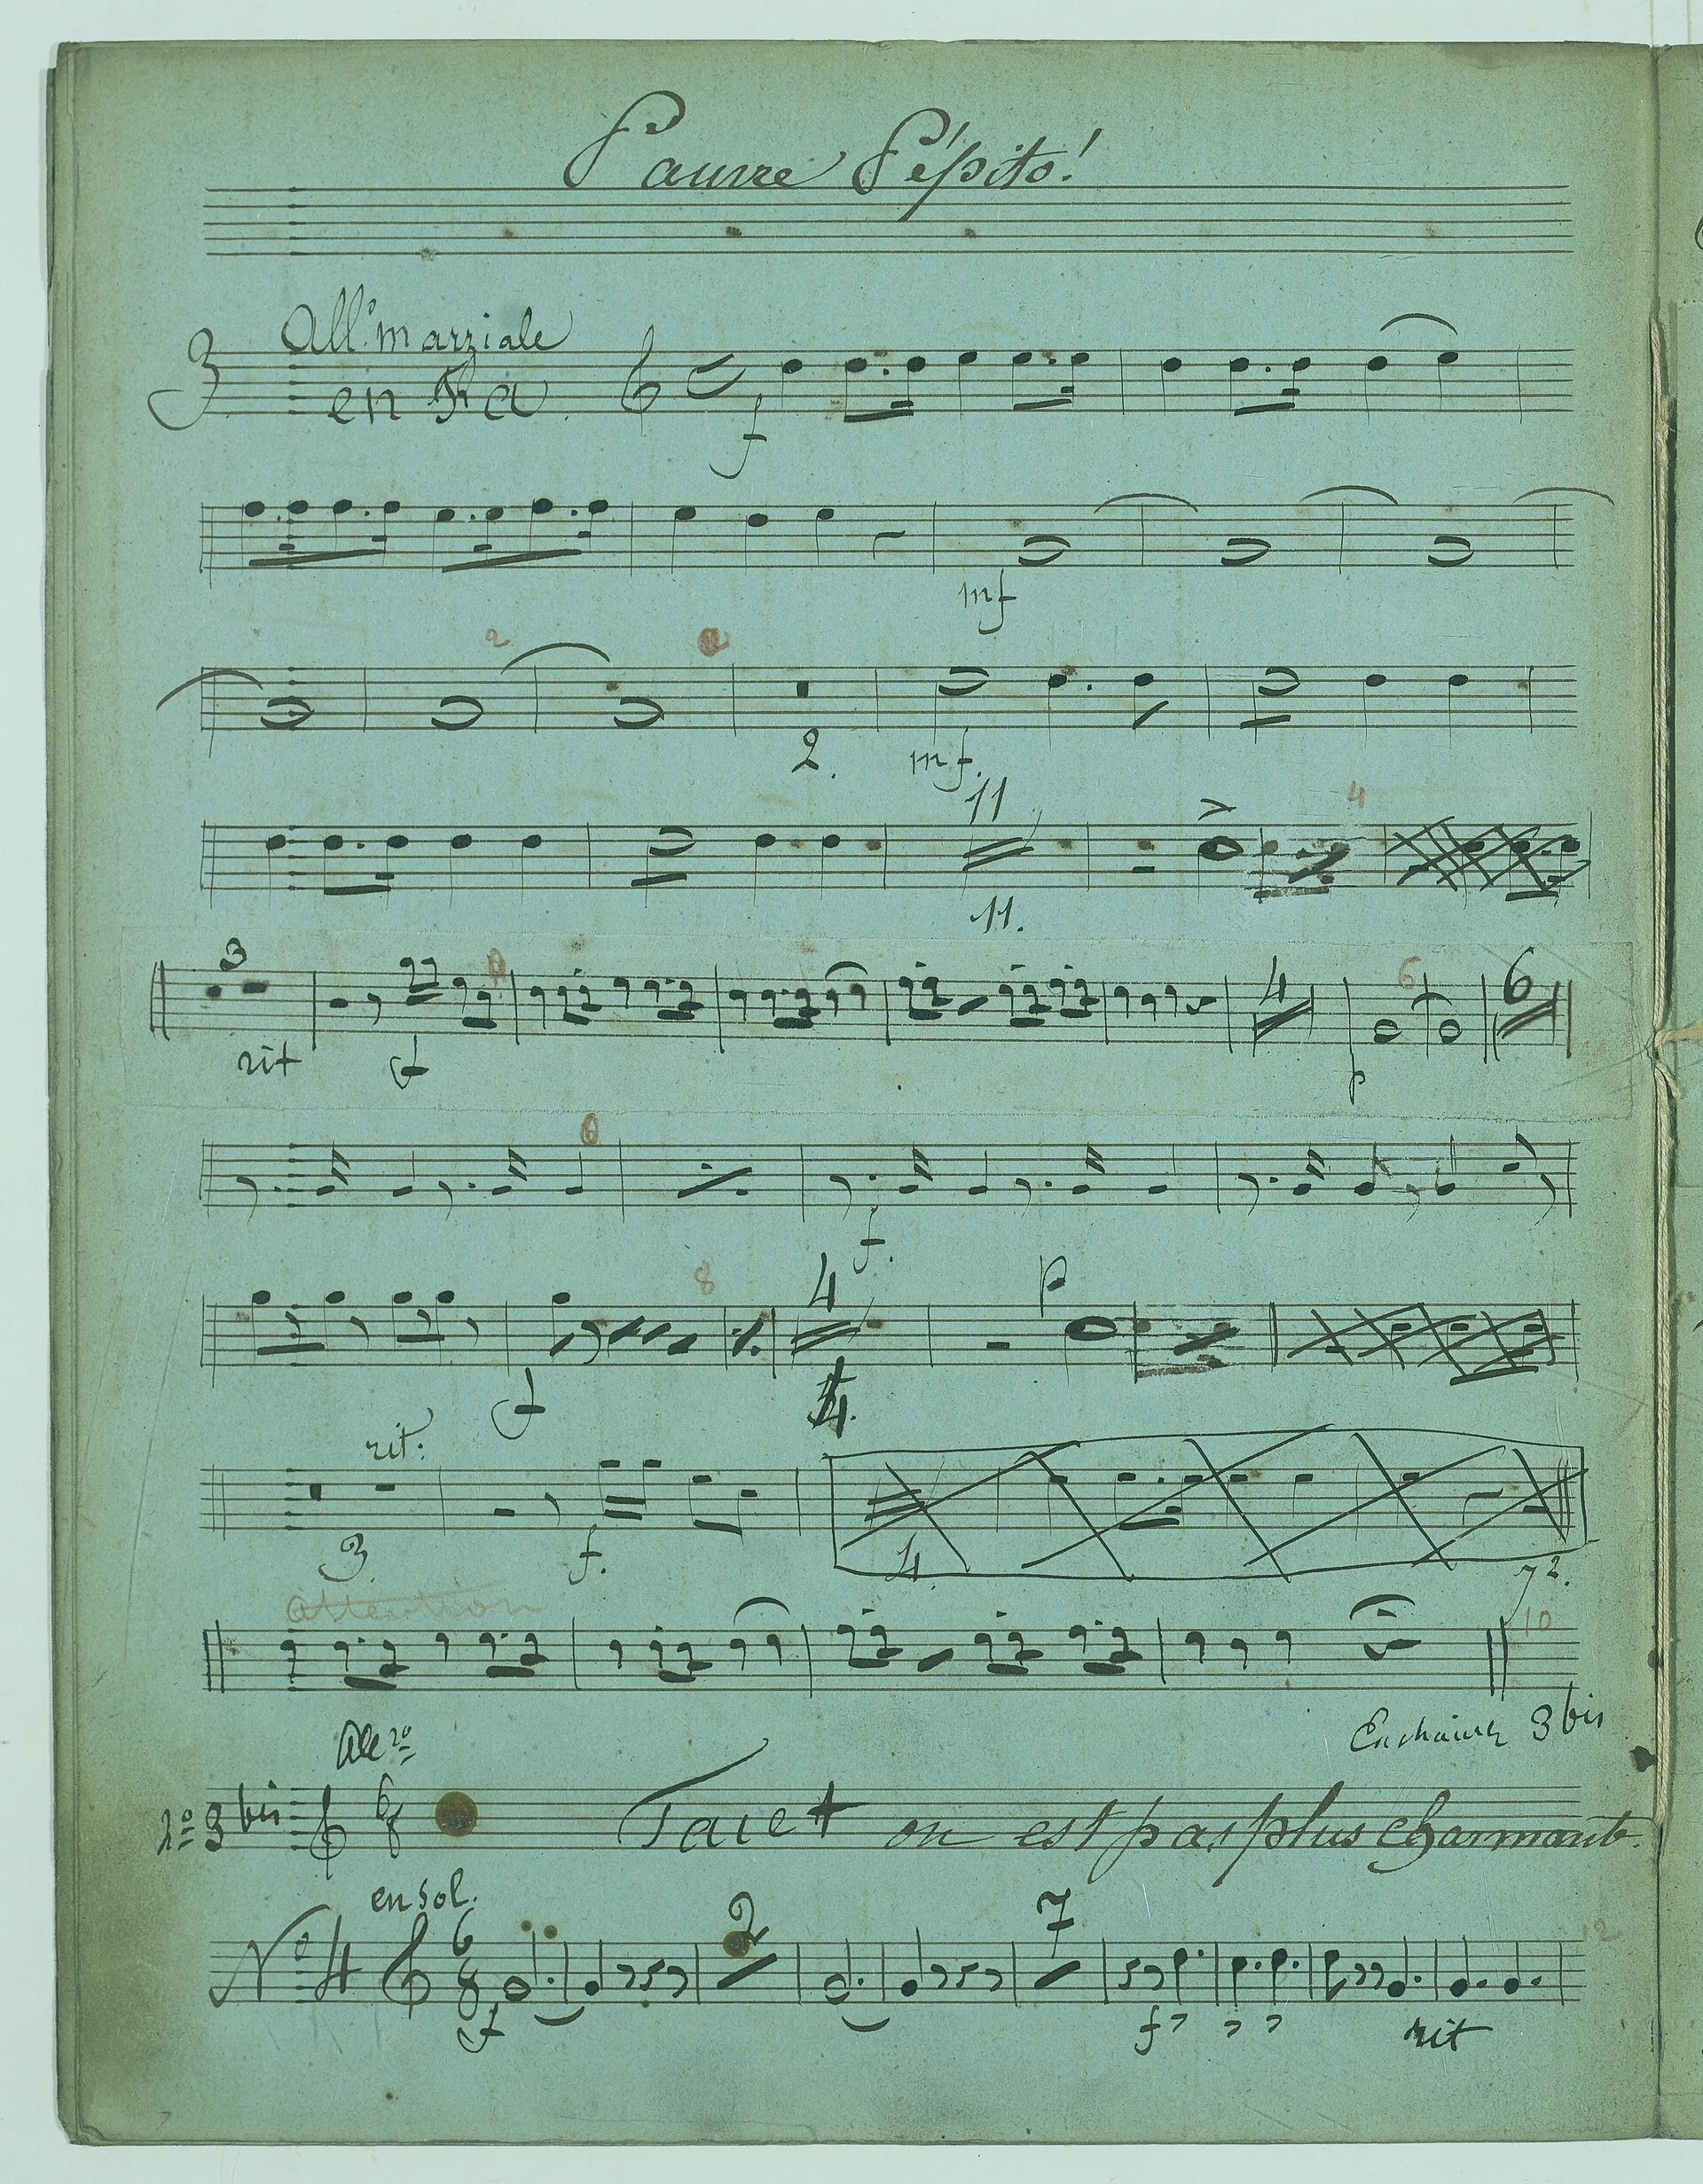 Pauvre Pépito!
3 All.º marziale
en Fa.
f
mf
2
2.
mf.
11
4
11.
3
rit
f
4
6
6
p
f.
8
4
p
f
4.
rit.
3.
f.
4.
attention
10
Enchainez 3 bis
All.º
nº 3 bis 6/8 Tacet on est pas plus charmante.
en sol.
Nº 4 6/8
2
7
12
f
f
rit